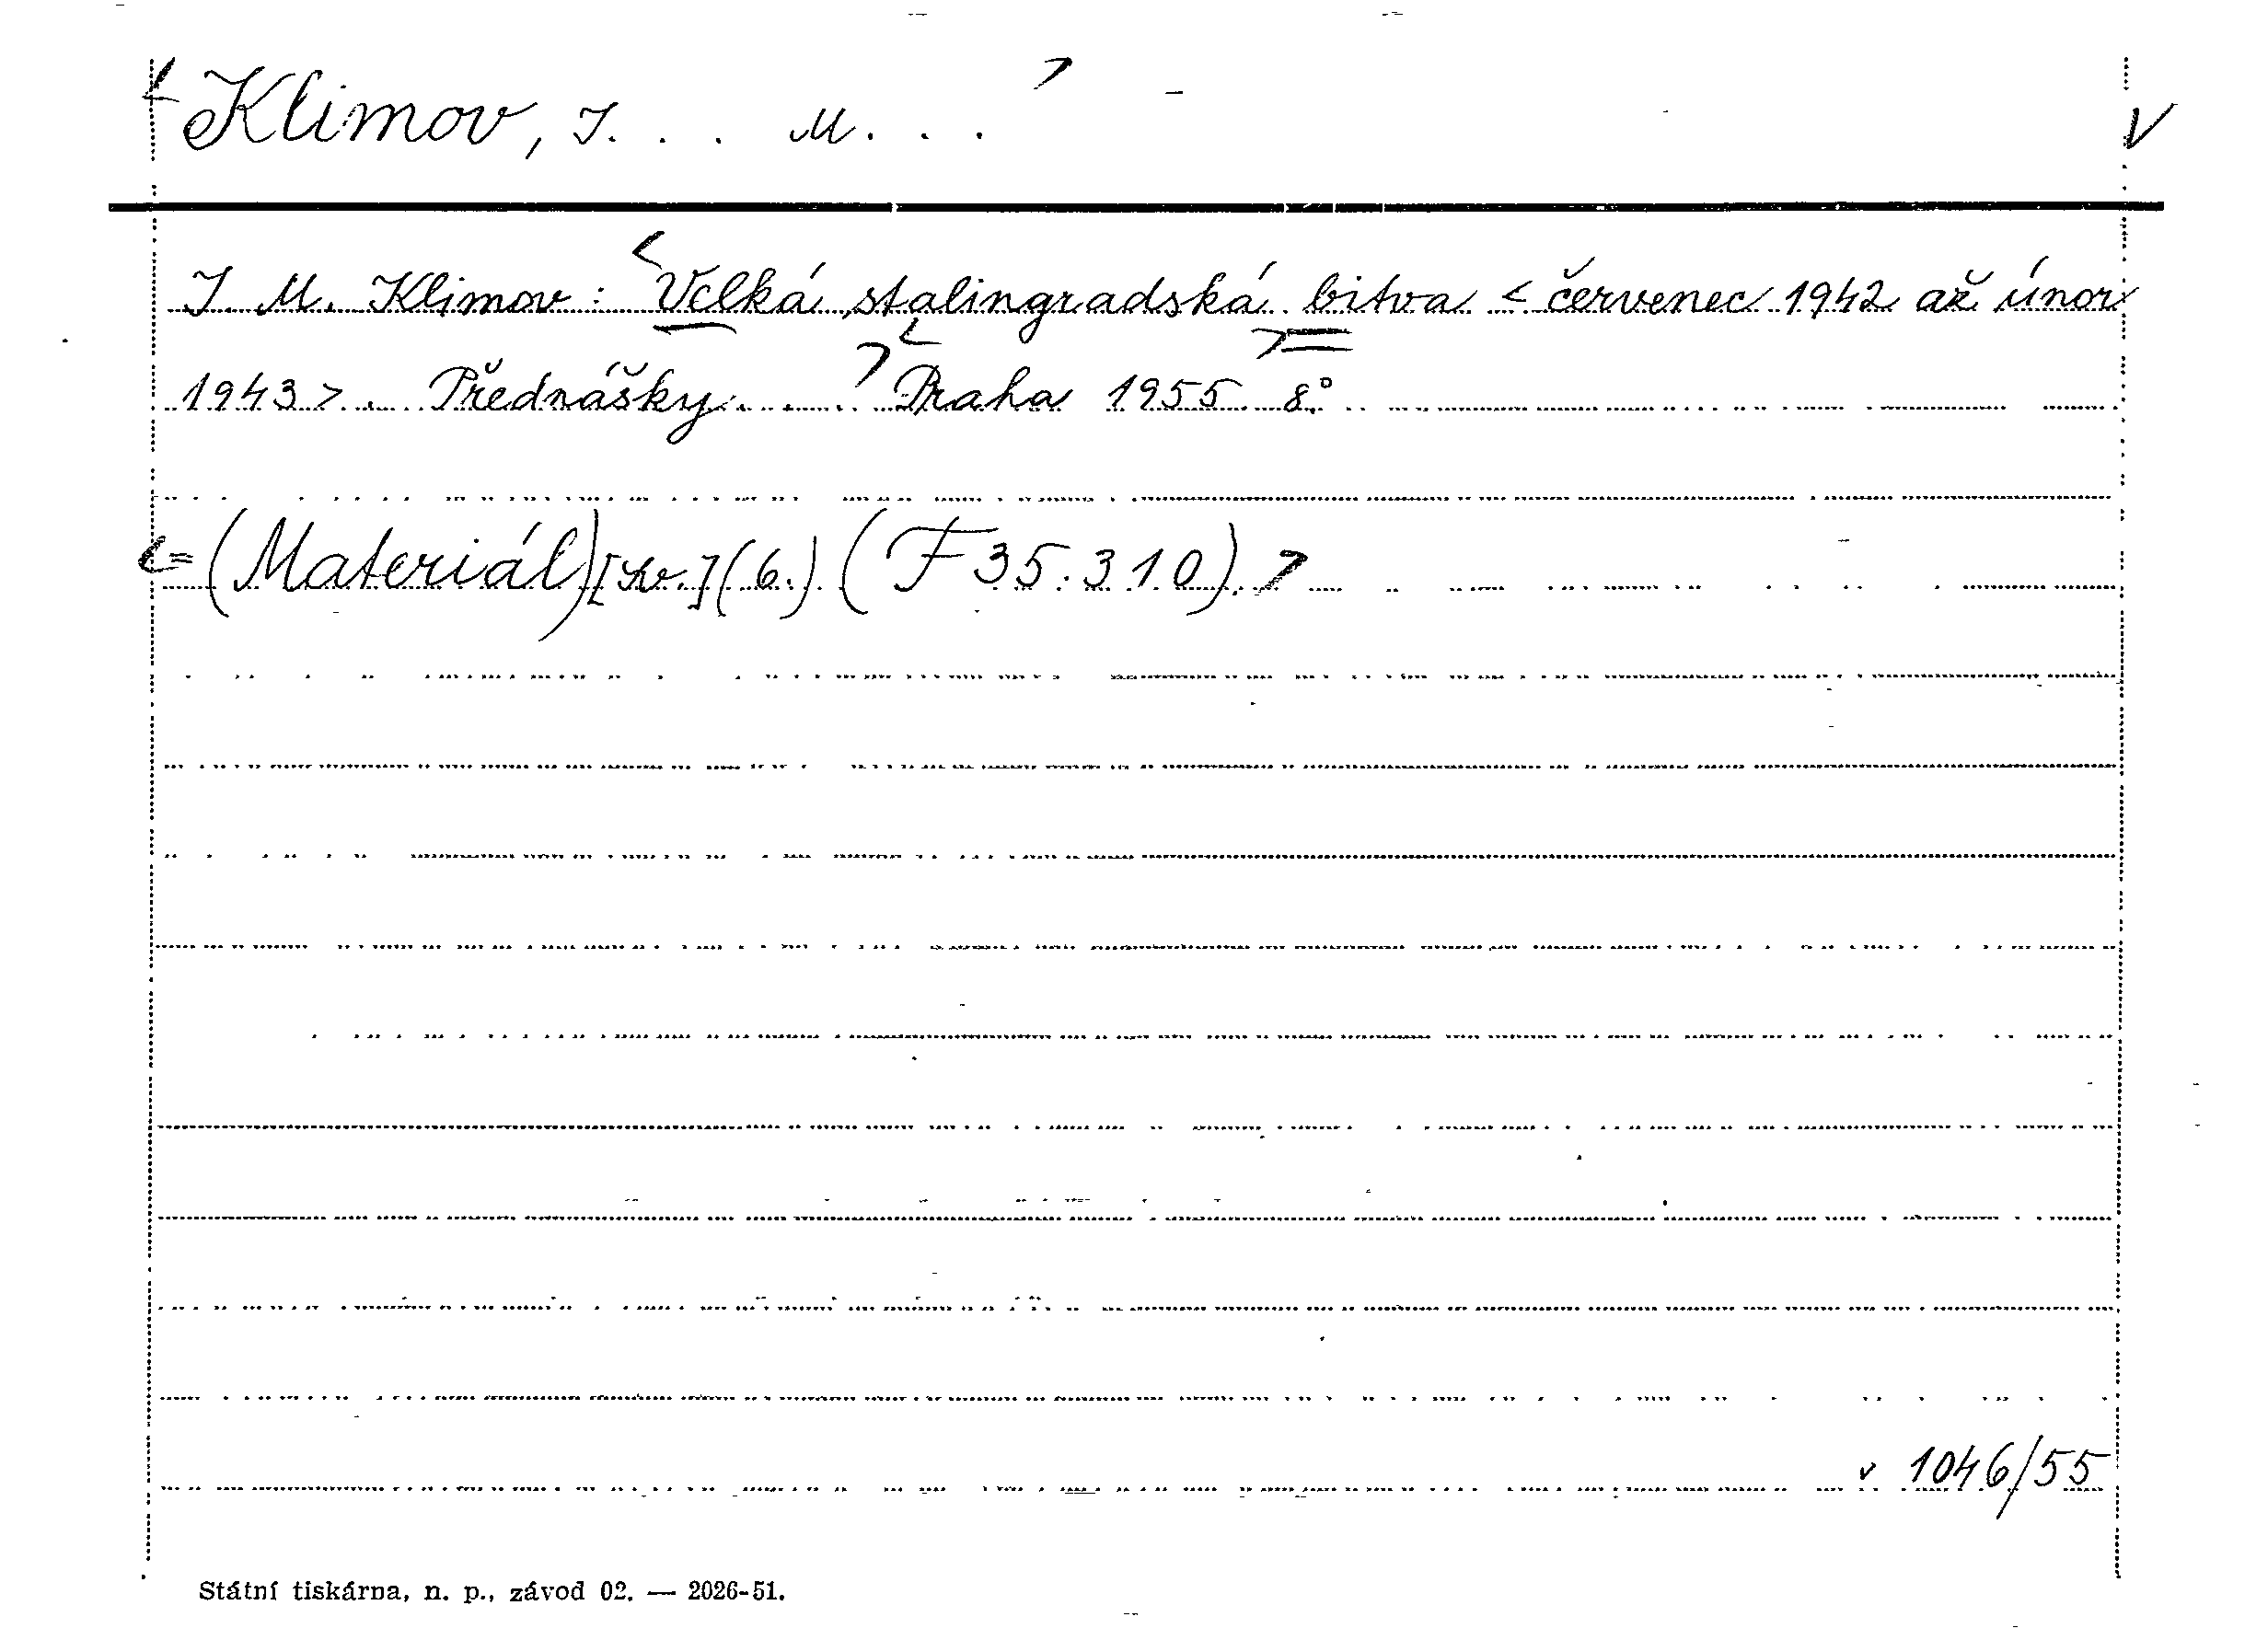 Klimov, I. . . M. . .
I. M. Klimov: Velká stalingradská bitva < červenec 1942 až únor
1943 > . Přednášky. . . Praha 1955 8°
= (Materiál) [sv.] (6.) (F 35.310).
1046/55
Státní tiskárna, n. p., závod 02. — 2026-51.